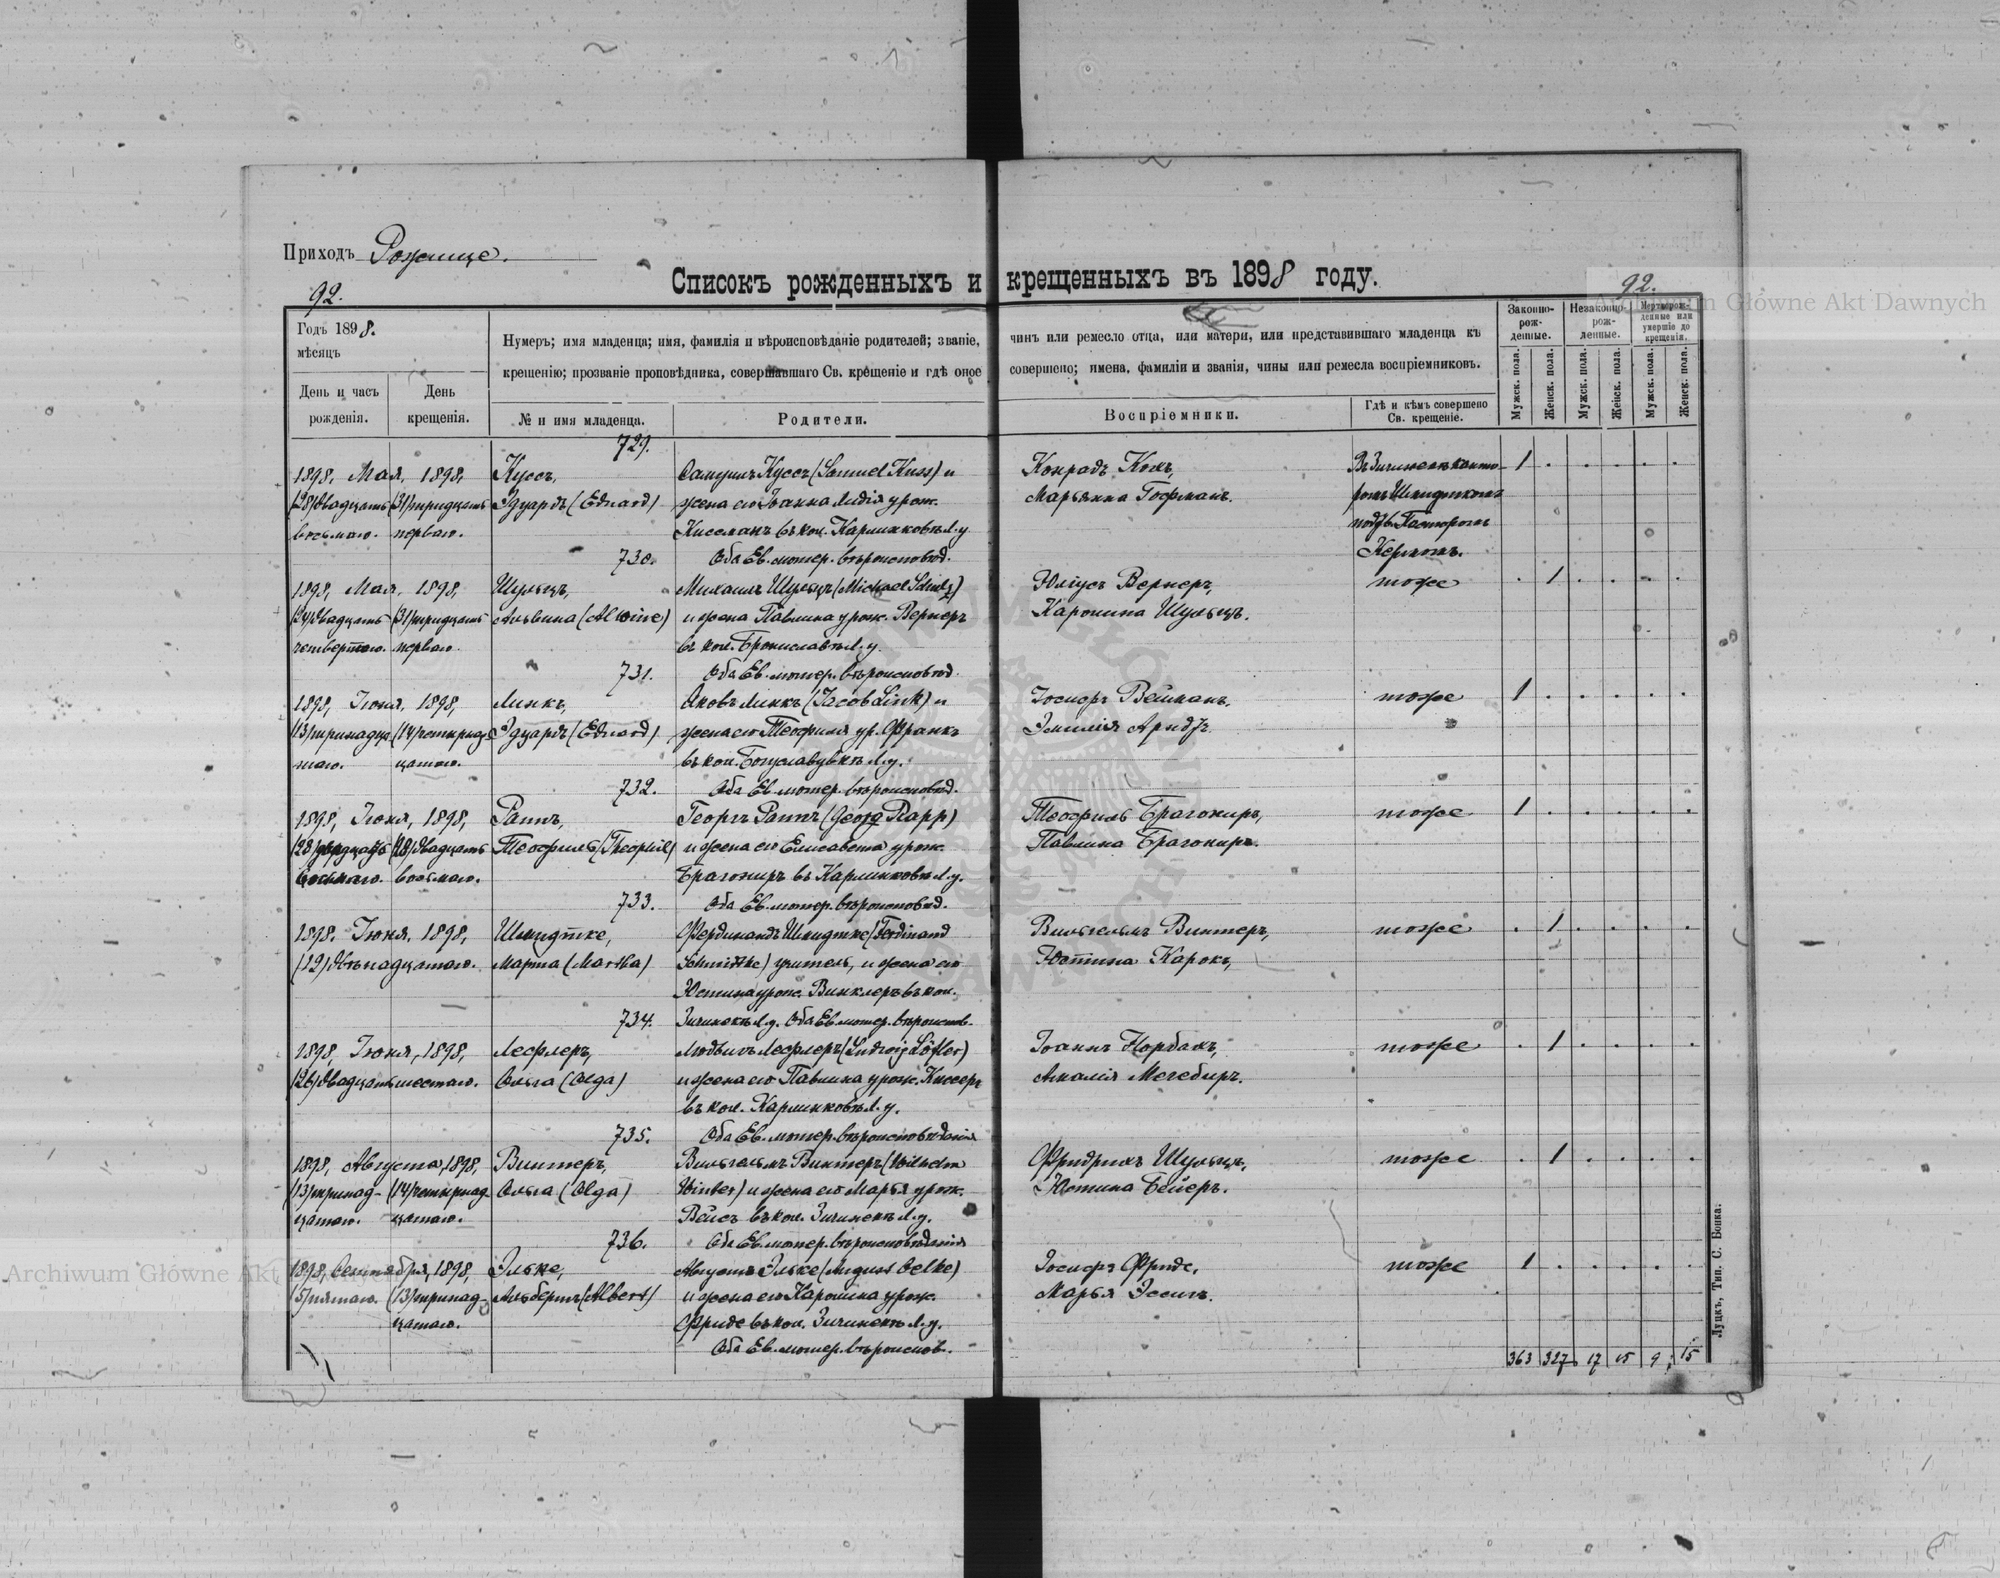 Приходъ Рожище.
Списокъ рожденныхъ и крещенныхъ въ 1898 году.
92.
92.
Archiwum Główne Akt Dawnych
Годъ 1898.
мѣсяцъ
День и часъ рожденія.
День крещенія.
Нумеръ; имя младенца; имя, фамилія и вѣроисповѣданіе родителей; званіе, чинъ или ремесло отца, или матери, или представившаго младенца къ
крещенію; прозваніе проповѣдника, совершавшаго Св. крещеніе и гдѣ оное совершено; имена, фамиліи и званія, чины или ремесла воспріемниковъ.
№ и имя младенца.
Родители.
Воспріемники.
Гдѣ и кѣмъ совершено Св. крещеніе.
Законно-рож-денные.
Незаконно-рож-денные.
Мертворож-денные или умершіе до крещенія.
Мужск. пола.
Женск. пола.
Мужск. пола.
Женск. пола.
Мужск. пола.
Женск. пола.
729.
1898, Мая, 1898, Куссъ, Самуилъ Куссъ (Samuel Kuss) и Конрадъ 1
(28) двадцать (31) тридцать Эдуардъ (Eduard) жена его Іоанна Лидія урож. Марьянна Гофманъ.
восьмаго. перваго. въ кол. подъ Пасторомъ
730. Оба Ев. лютер. вѣроисповѣд. Керномъ.
1898, Мая, 1898, Шульцъ, Михаилъ Шульцъ (Michael Schulz) Юліусъ Вернеръ, тоже 1
(24) двадцать (31) тридцать Альвина (Alwine) и жена Павлина урож. Вернеръ Каролина Шульцъ.
четвертаго. перваго. въ кол. Брониславъ Л. у.
731. Оба Ев. лютер. вѣроисповѣд.
1898, Іюня, 1898, Линкъ, Яковъ Линкъ (Jacob Link) и Іосифъ Вейманъ, тоже 1
(13) тринадца (14) четырнад Эдуардъ (Eduard) жена его Теофиля ур. Франкъ Эмилія Арндтъ
таго. цатаго. въ кол. Богуславувкѣ Л. у.
732. Оба Ев. лютер. вѣроисповѣд.
1898, Іюня, 1898, Раппъ, Георгъ Раппъ (Georg Rapp) Теофиль тоже 1
(28) двадцать Теофиль (Theophil) и жена его Елисавета урож. Павлина
восьмаго. восьмаго. въ Л. у.
733. Оба Ев. лютер. вѣроисповѣд.
1898, Іюня, 1898, Шмидтке, Фердинандъ Шмидтке (Ferdinand Вильгельмъ Винтеръ, тоже 1
(12) двѣнадцатаго. Марта (Martha) Schmidtke) учитель, и жена его Юстина Карокъ,
Юстина урож. Винклеръ въ кол.
734. Л. у. Оба Ев. лютер. вѣроиспов.
1898, Іюня, 1898, Лефлеръ, Людвигъ Лефлеръ (Ludwig Löfler) Іоаннъ тоже 1
(26) двадцать шестаго. Ольга (Olga) и жена его Павлина урож. Амалія
въ кол. Л. у.
735. Оба Ев. лютер. вѣроисповѣданія
1898, Августа, 1898, Винтеръ, Вильгельмъ Винтеръ (Wilhelm Фридрихъ Шульцъ, тоже 1
(13) тринад- (14) четырнад Ольга (Olga) Winter) и жена его Марья урож. Юстина Бейеръ.
цатаго. цатаго. Вейсъ въ кол. Л. у.
736. Оба Ев. лютер. вѣроисповѣданія
1898, Сентября, 1898, Эльке, Августъ Эльке (August Oelke) Іосифъ Фриде, тоже 1
(5) пятаго. (13) тринад- Альбертъ (Albert) и жена его Каролина урож. Марья
цатаго. Фриде въ кол. Л. у.
Оба Ев. лютер. вѣроиспов.
363 327 17 15 9 15
Луцкъ, Тип. С. Бонка.